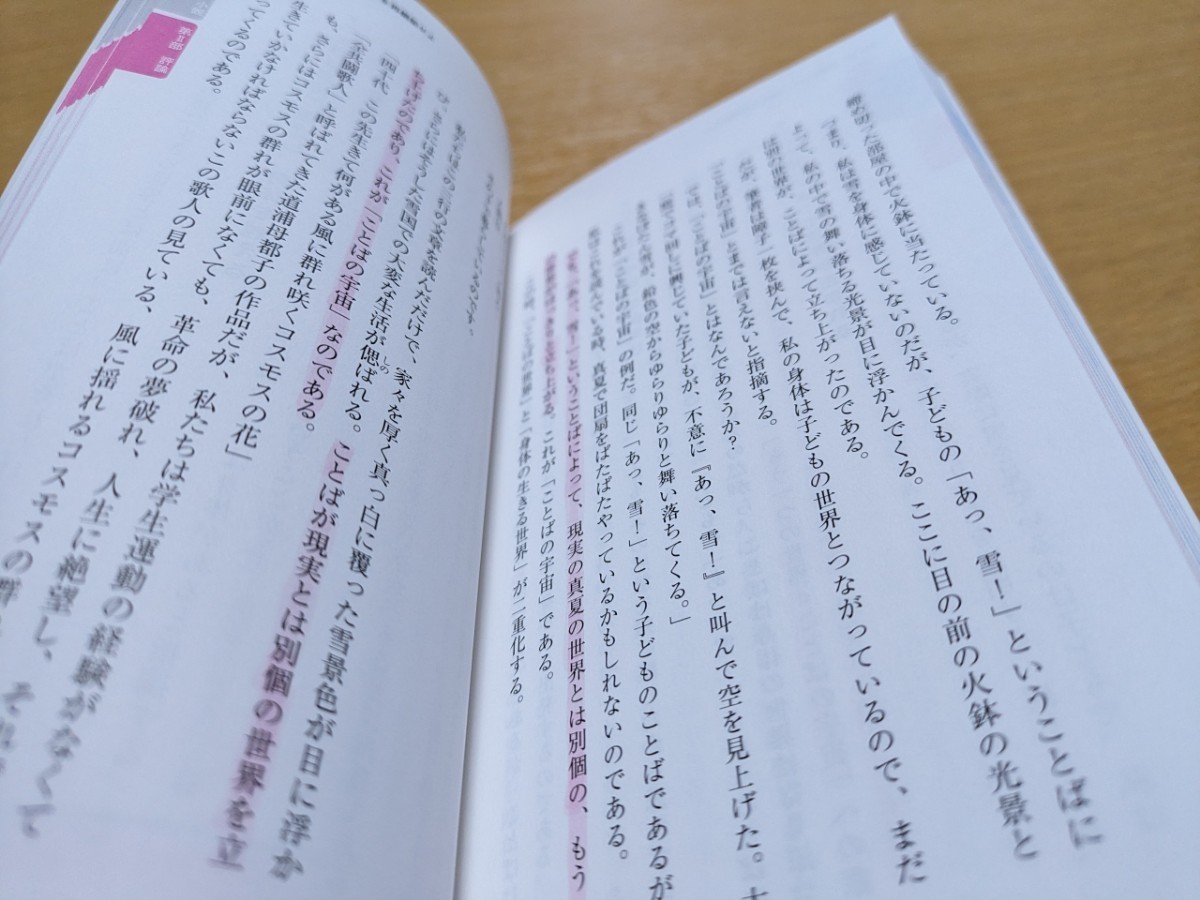 締め切った部屋の中で火鉢に当たっている。
「つまり、私は雪を身体に感じていないのだが、子どもの「あっ、雪！」ということばに
よって、私の中で雪の舞い落ちる光景が目に浮かんでくる。ここに目の前の火鉢の光景と
は別の世界が、ことばによって立ち上がったのである。
だが、筆者は障子一枚を挟んで、私の身体は子どもの世界とつながっているので、まだ
「ことばの宇宙」とまでは言えないと指摘する。
では、「ことばの宇宙」とはなんであろうか？
しに興じていた子どもが、不意に『あっ、雪！』と叫んで空を見上げた。
鉛色の空からゆらりゆらりと舞い落ちてくる。」
これが「ことばの宇宙」の例だ。同じ「あっ、雪！」という子どものことばであるが
を読んでいる時、真夏で団扇をばたばたやっているかもしれないのである。
「あっ、雪！」ということばによって、現実の真夏の世界とは別個の、もう
立ち上がる。これが「ことばの宇宙」である。
この時、「ことばの世界」と「身体の生きる世界」が二重化する。
第Ⅱ部 評論
の文章を読んだだけで、家々を厚く真っ白に覆った雪景色が目に浮か
び、さらにはそうした雪国での大変な生活が偲ばれる。ことばが現実とは別個の世界を立
しの
ち上げたのであり、これが「ことばの宇宙」なのである。
「四十代 この先生きて何がある風に群れ咲くコスモスの花」
「全共闘歌人」と呼ばれてきた道浦母都子の作品だが、私たちは学生運動の経験がなくて
も、さらにはコスモスの群れが眼前になくても、革命の夢破れ、人生に絶望し、それ
生きていかなければならないこの歌人の見ている、風に揺れるコスモスの群
ってくるのである。